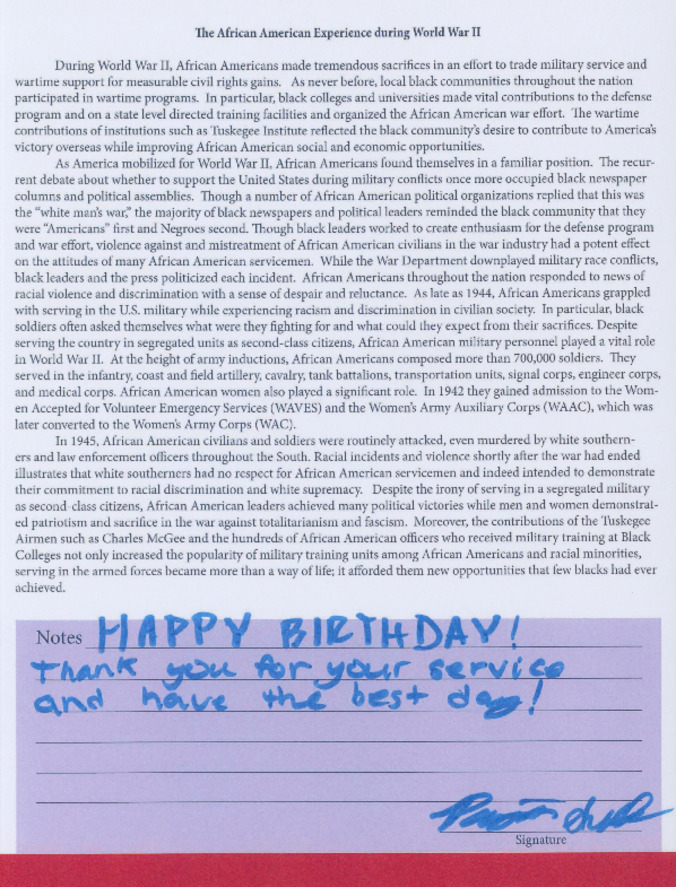 The African American Experience during World War II
During World War II, African Americans made tremendous sacrifices in an effort to trade military service and
wartime support for measurable civil rights gains. As never before, local black communities throughout the nation
participated in wartime programs. In particular, black colleges and universities made vital contributions to the defense
program and on a state level directed training facilities and organized the African American war effort. The wartime
contributions of institutions such as Tuskegee Institute reflected the black community's desire to contribute to America's
victory overseas while improving African American social and economic opportunities.
As America mobilized for World War II, African Americans found themselves in a familiar position. The recur-
rent debate about whether to support the United States during military conflicts once more occupied black newspaper
columns and political assemblies. Though a number of African American political organizations replied that this was
the "white man's war," the majority of black newspapers and political leaders reminded the black community that they
were "Americans" first and Negroes second. Though black leaders worked to create enthusiasm for the defense program
and war effort, violence against and mistreatment of African American civilians in the war industry had a potent effect
on the attitudes of many African American servicemen. While the War Department downplayed military race conflicts,
black leaders and the press politicized each incident. African Americans throughout the nation responded to news of
racial violence and discrimination with a sense of despair and reluctance. As late as 1944, African Americans grappled
with serving in the U.S. military while experiencing racism and discrimination in civilian society. In particular, black
soldiers often asked themselves what were they fighting for and what could they expect from their sacrifices. Despite
serving the country in segregated units as second-class citizens, African American military personnel played a vital role
in World War II. At the height of army inductions, African Americans composed more than 700,000 soldiers. They
served in the infantry, coast and field artillery, cavalry, tank battalions, transportation units, signal corps, engineer corps,
and medical corps. African American women also played a significant role. In 1942 they gained admission to the Wom-
en Accepted for Volunteer Emergency Services (WAVES) and the Women's Army Auxiliary Corps (WAAC), which was
later converted to the Women's Army Corps (WAC).
In 1945, African American civilians and soldiers were routinely attacked, even murdered by white southern-
ers and law enforcement officers throughout the South. Racial incidents and violence shortly after the war had ended
illustrates that white southerners had no respect for African American servicemen and indeed intended to demonstrate
their commitment to racial discrimination and white supremacy. Despite the irony of serving in a segregated military
as second-class citizens, African American leaders achieved many political victories while men and women demonstrat-
ed patriotism and sacrifice in the war against totalitarianism and fascism. Moreover, the contributions of the Tuskegee
Airmen such as Charles McGee and the hundreds of African American officers who received military training at Black
Colleges not only increased the popularity of military training units among African Americans and racial minorities,
serving in the armed forces became more than a way of life; it afforded them new opportunities that few blacks had ever
achieved.
Notes HAPPY BIRTHDAY!
Thank you for your service
and have the best day!
Signature